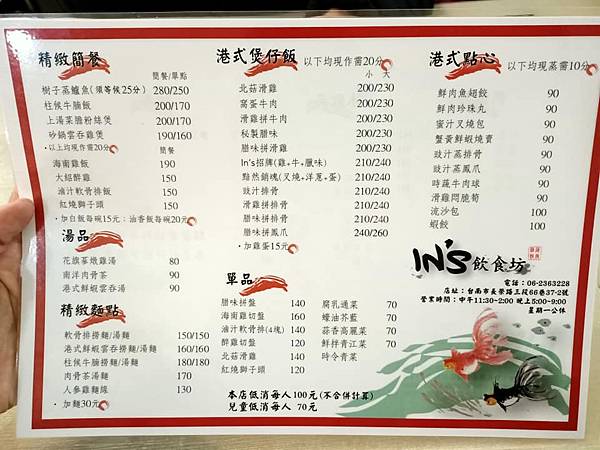 精緻簡餐
簡餐/單點
樹子蒸鱸魚(須等候25分) 280/250
柱候牛腩飯 200/170
上湯菜膽粉絲煲 200/170
砂鍋雲吞雞煲 190/160
•以上均現作需20分
簡餐
海南雞飯 190
大紹醉雞 150
滷汁軟骨排飯 150
紅燒獅子頭 150
•加白飯每碗15元;油香飯每碗20元
湯品
花旗蔘燉雞湯 80
南洋肉骨茶 90
港式鮮蝦雲吞湯 90
精緻麵點
軟骨排撈麵/湯麵 150/150
港式鮮蝦雲吞撈麵/湯麵 160/160
柱候牛腩撈麵/湯麵 180/180
肉骨茶湯麵 170
人參雞麵線 130
•加麵30元
港式煲仔飯 以下均現作需20分
小 大
北菇滑雞 200/230
窩蛋牛肉 200/230
滑雞拼牛肉 200/230
秘製腊味 200/230
腊味拼滑雞 200/230
In's招牌(雞+牛+臘味) 210/240
黯然銷魂(叉燒+洋蔥+蛋) 210/240
豉汁排骨 210/240
滑雞拼排骨 210/240
腊味拼排骨 210/240
腊味拼鳳爪 240/260
•加雞蛋15元
單品
腊味拼盤 140
海南雞切盤 160
滷汁軟骨排(4塊) 140
醉雞切盤 120
北菇滑雞 140
紅燒獅子頭 120
腐乳通菜 70
蠔油芥藍 70
蒜香高麗菜 70
鮮拌青江菜 70
時令青菜 70
本店低消每人100元(不合併計算)
兒童低消每人 70元
港式點心 以下均現蒸需10分
鮮肉魚翅餃 90
鮮肉珍珠丸 90
蜜汁叉燒包 90
蟹黃鮮蝦燒賣 90
豉汁蒸排骨 90
豉汁蒸鳳爪 90
時蔬牛肉球 90
滑雞悶脆筍 90
流沙包 100
蝦餃 100
IN'S飲食坊
電話:06-2363228
店址:台南市長榮路三段66巷37-2號
營業時間:中午11:30~2:00 晚上5:00~9:00
星期一公休